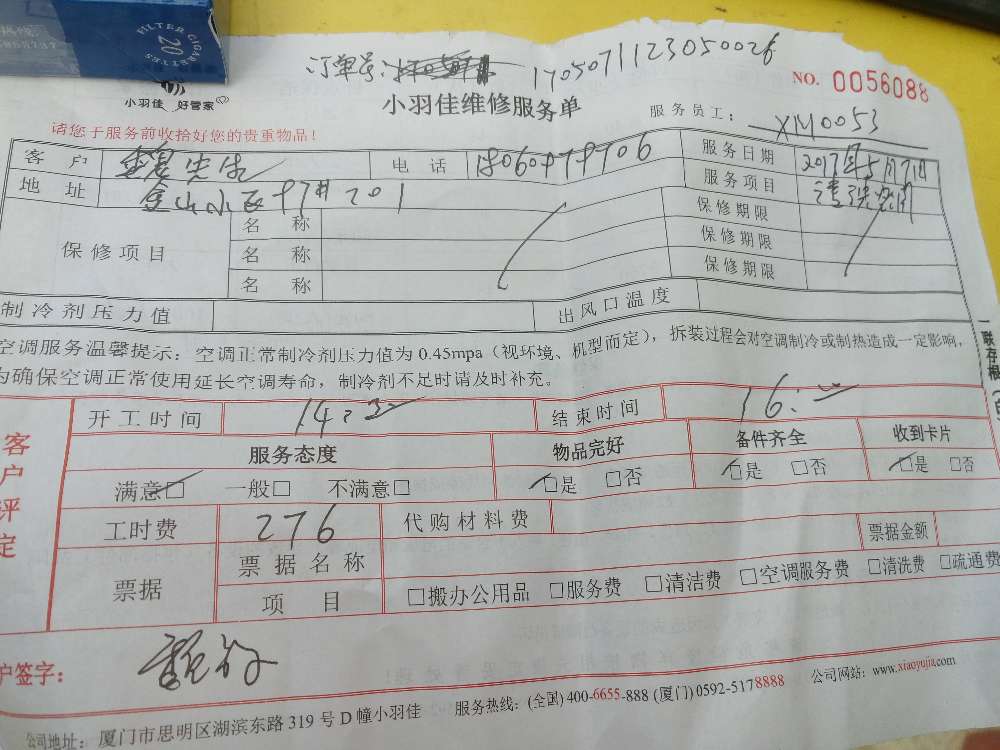 FILTER CIGARETTES
20
订单号: 1705071123050026
小羽佳 好管家
小羽佳维修服务单
NO. 0056088
请您于服务前收拾好您的贵重物品！
服务员工： XM0053
客户 先生 电话 服务日期 2017年5月7日
地址 金山小区 201 服务项目 清洗
保修项目 名称 保修期限
名称 保修期限
名称 保修期限
制冷剂压力值 出风口温度
空调服务温馨提示：空调正常制冷剂压力值为 0.45mpa（视环境、机型而定），拆装过程会对空调制冷或制热造成一定影响，
为确保空调正常使用延长空调寿命，制冷剂不足时请及时补充。
一联存根
客户评定
开工时间 14:3 结束时间 16:
服务态度 物品完好 备件齐全 收到卡片
满意□ 一般□ 不满意□ □是 □否 □是 □否 □是 □否
工时费 276 代购材料费 票据金额
票据 票据名称
项目 □搬办公用品 □服务费 □清洁费 □空调服务费 □清洗费 □疏通费
户签字：
公司地址：厦门市思明区湖滨东路 319 号 D 幢小羽佳 服务热线：(全国) 400-6655-888 (厦门) 0592-5178888 公司网站：www.xiaoyujia.com